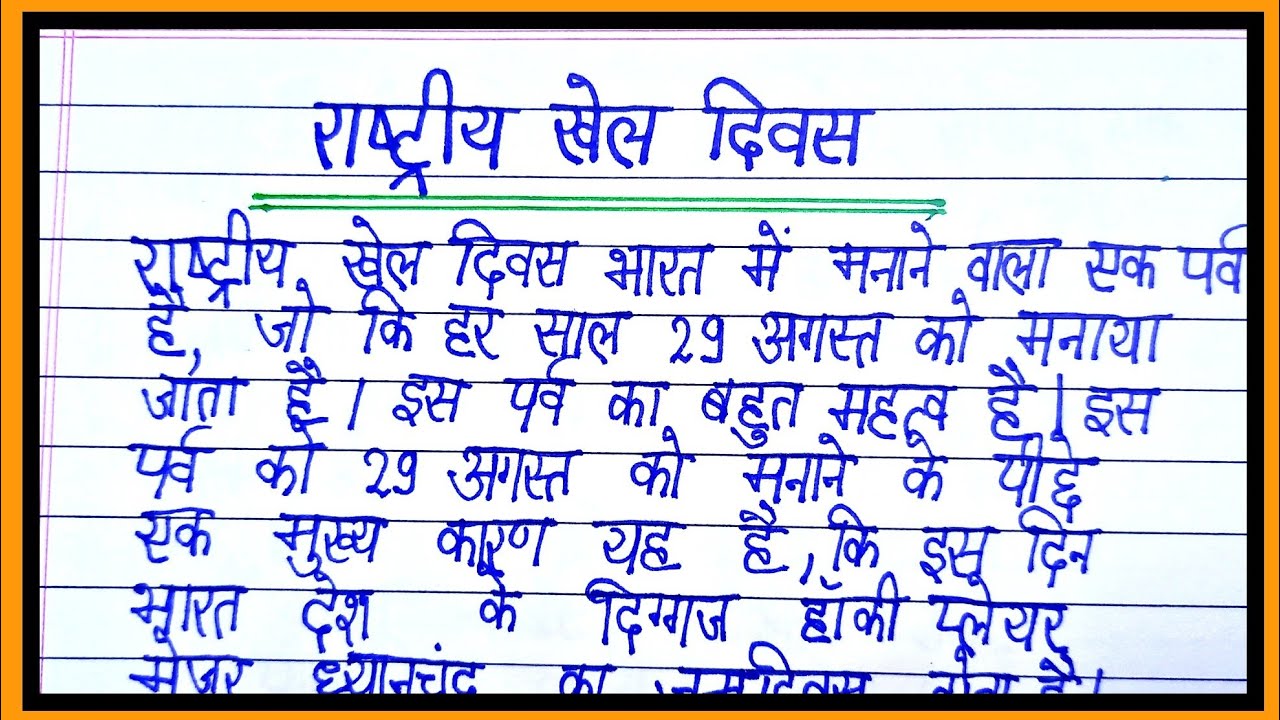 राष्ट्रीय खेल दिवस
राष्ट्रीय खेल दिवस भारत में मनाने वाला एक पर्व
है, जो कि हर साल 29 अगस्त को मनाया
जाता है। इस पर्व का बहुत महत्व है। इस
पर्व को 29 अगस्त को मनाने के पीछे
एक मुख्य कारण यह है, कि इस दिन
भारत देश के दिग्गज हॉकी प्लेयर
मेजर ध्यानचंद का जन्मदिवस होता है।